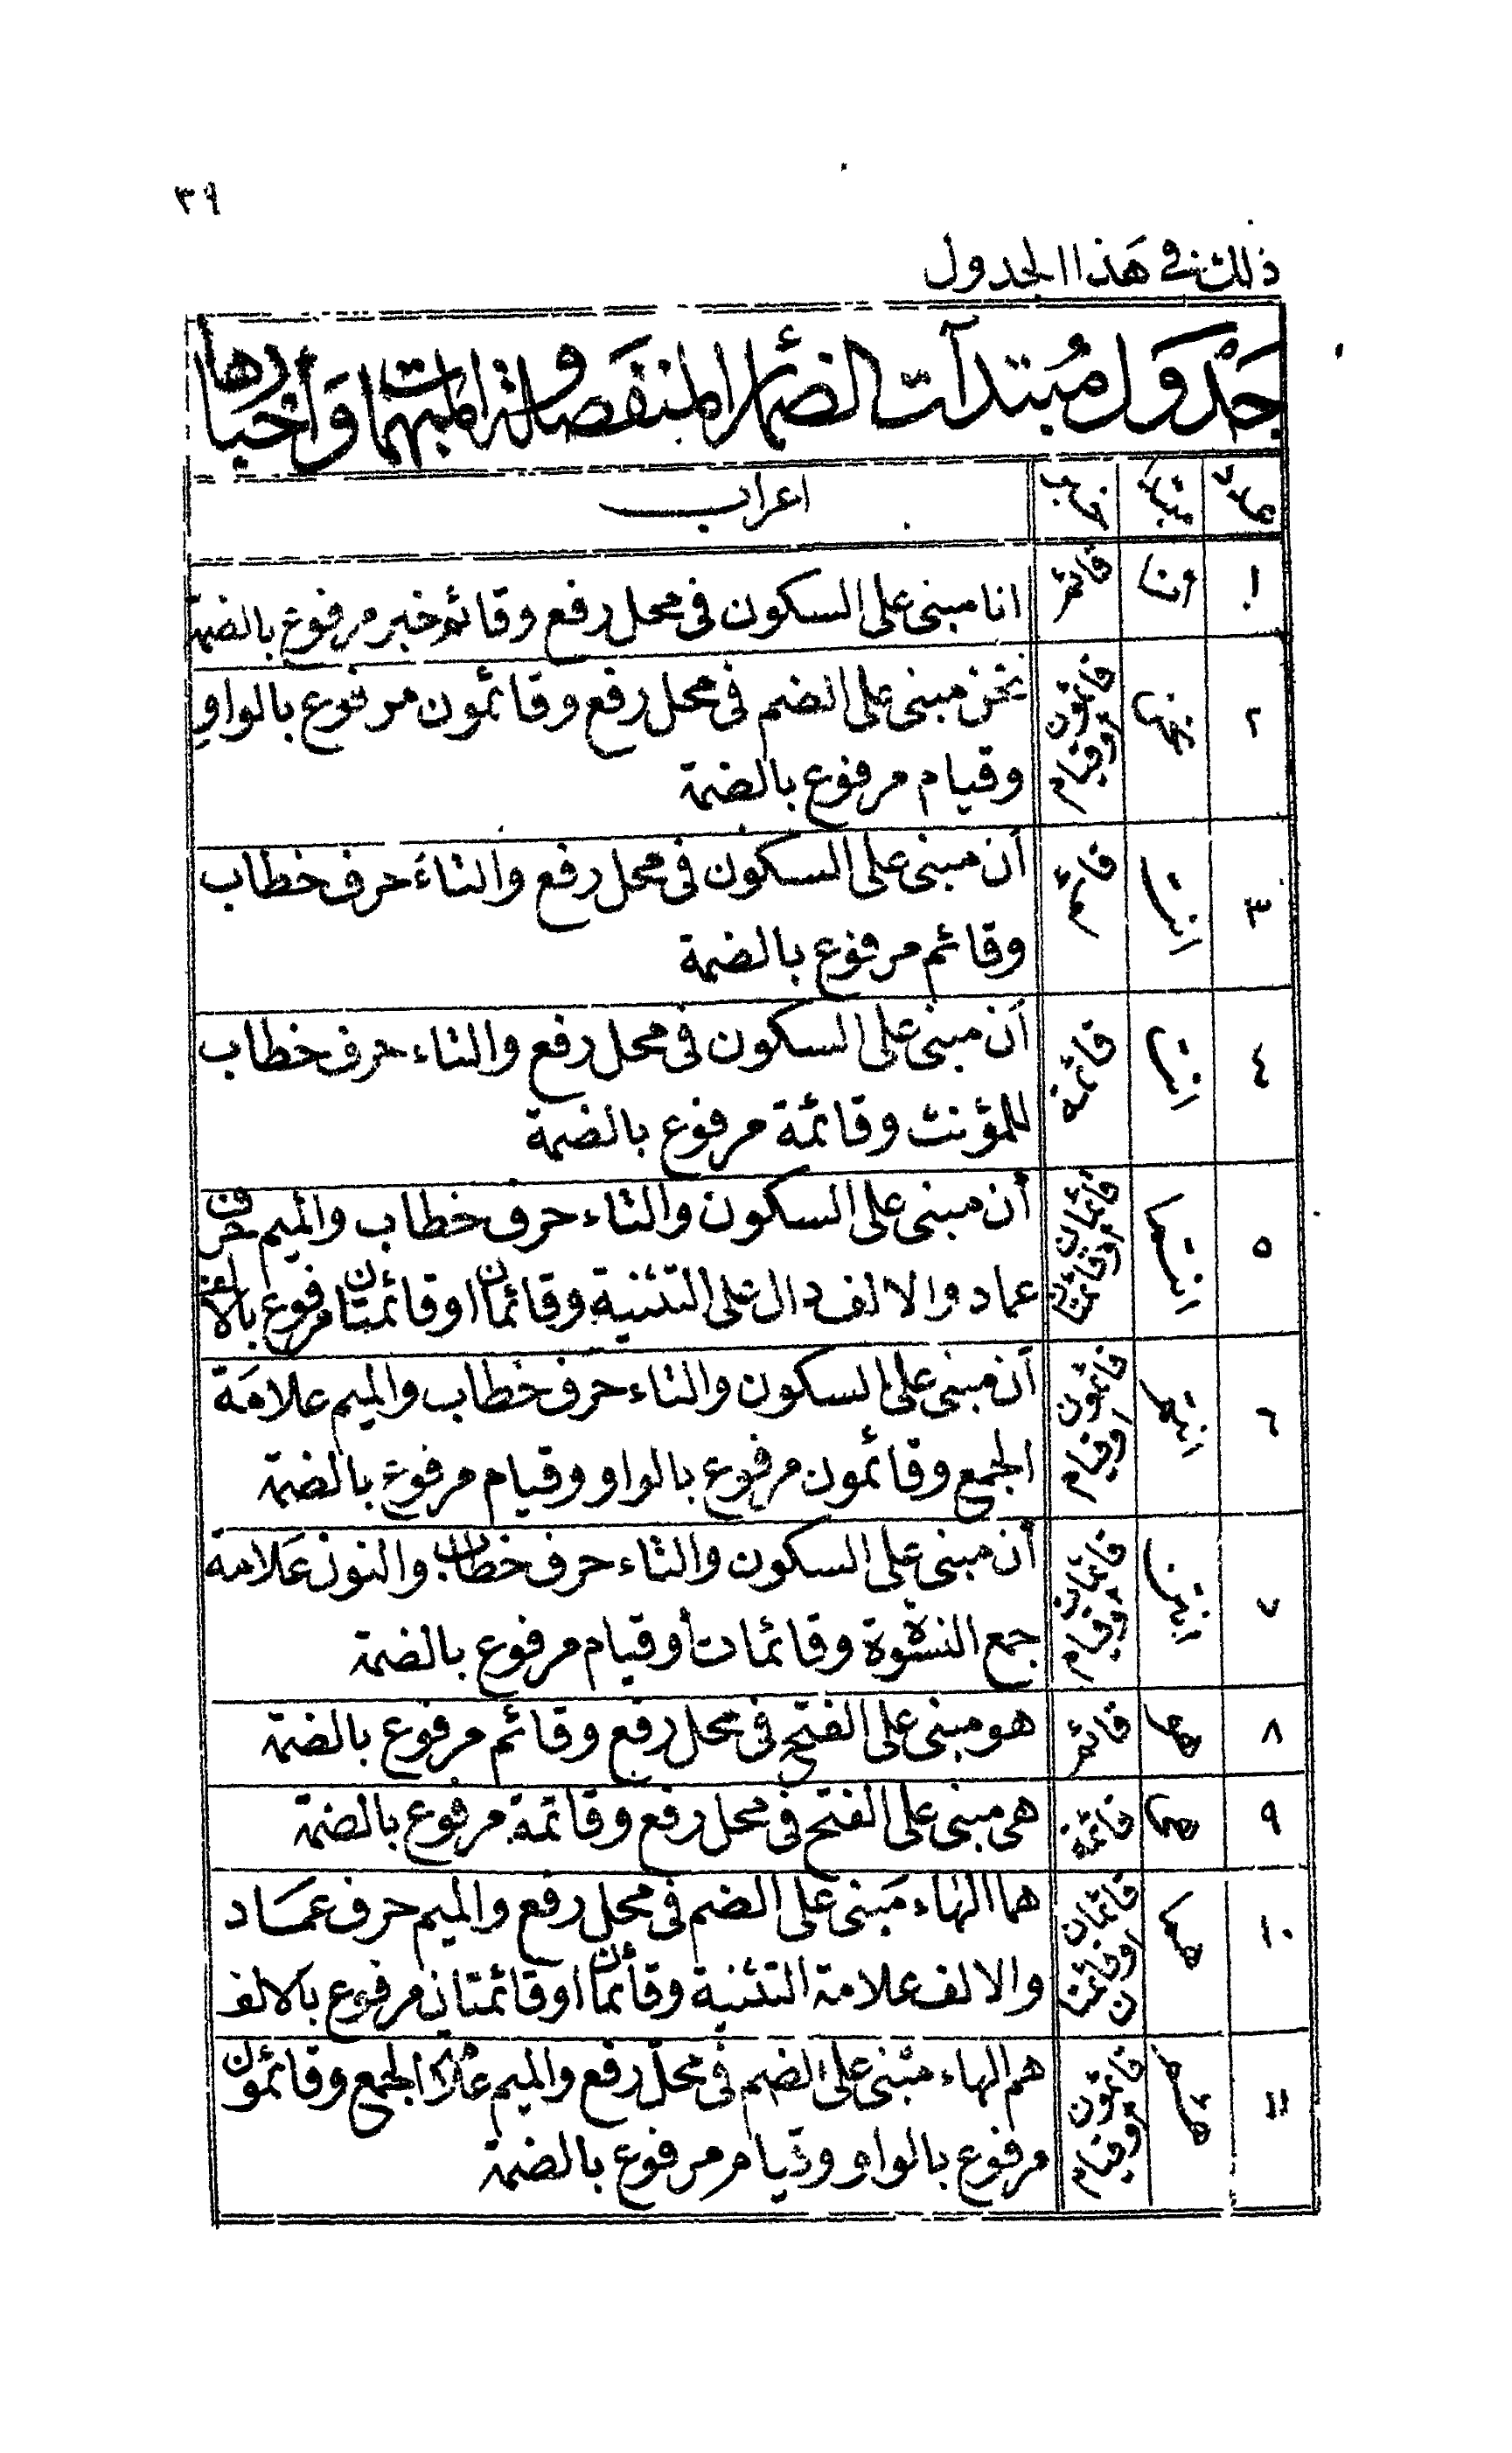 ٣٩
ذلك في هذا الجدول
جَدْوَل مُبتدآت الضمائر المنفصلة والمبهمات وَأخبارها
عدد مبتدا خبر اعراب
١ انا قائم انا مبنى على السكون فى محل رفع وقائم خبر مرفوع بالضمة
٢ نحن قائمون اوقيام نحن مبنى على الضم فى محل رفع وقائمون مرفوع بالواو
وقيام مرفوع بالضمة
٣ انت قائم أن مبنى على السكون فى محل رفع والتاء حرف خطاب
وقائم مرفوع بالضمة
٤ انت قائمة أن مبنى على السكون فى محل رفع والتاء حرف خطاب
للمؤنث وقائمة مرفوع بالضمة
٥ انتما قائمان اوقائمتان أن مبنى على السكون والتاء حرف خطاب والميم حرف
عماد والالف دال على التثنية وقائمان اوقائمتان مرفوع بالالف
٦ انتم قائمون اوقيام أن مبنى على السكون والتاء حرف خطاب والميم علامة
الجمع وقائمون مرفوع بالواو وقيام مرفوع بالضمة
٧ انتن قائمات اوقيام أن مبنى على السكون والتاء حرف خطاب والنون عَلامة
جمع النسوة وقائمات أوقيام مرفوع بالضمة
٨ هو قائم هو مبنى على الفتح فى محل رفع وقائم مرفوع بالضمة
٩ هى قائمة هى مبنى على الفتح فى محل رفع وقائمة مرفوع بالضمة
١٠ هما قائمان اوقائمتان هما الهاء مَبنى على الضم فى محل رفع والميم حرف عمَاد
والالف علامة التثنية وقائمان اوقائمتان مرفوع بالالف
١١ هم قائمون اوقيام هم الهاء مبنى على الضم فى محل رفع والميم علامة الجمع وقائمون
مرفوع بالواو وقيام مرفوع بالضمة